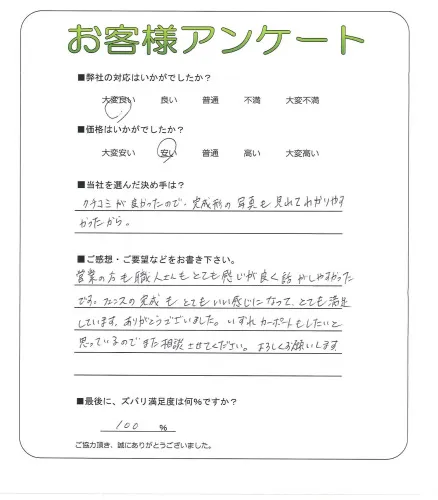 お客様アンケート
■弊社の対応はいかがでしたか?
大変良い 良い 普通 不満 大変不満
■価格はいかがでしたか?
大変安い 安い 普通 高い 大変高い
■当社を選んだ決め手は?
クチコミが良かったので、完成形の写真も見れてわかりやす
かったから。
■ご感想・ご要望などをお書き下さい。
営業の方も職人さんもとても感じが良く話がしやすかった
です。フェンスの完成もとてもいい感じになって、とても満足
しています。ありがとうございました。いずれカーポートもしたいと
思っているのでまた相談させてください。よろしくお願いします
■最後に、ズバリ満足度は何%ですか?
100 %
ご協力頂き、誠にありがとうございました。